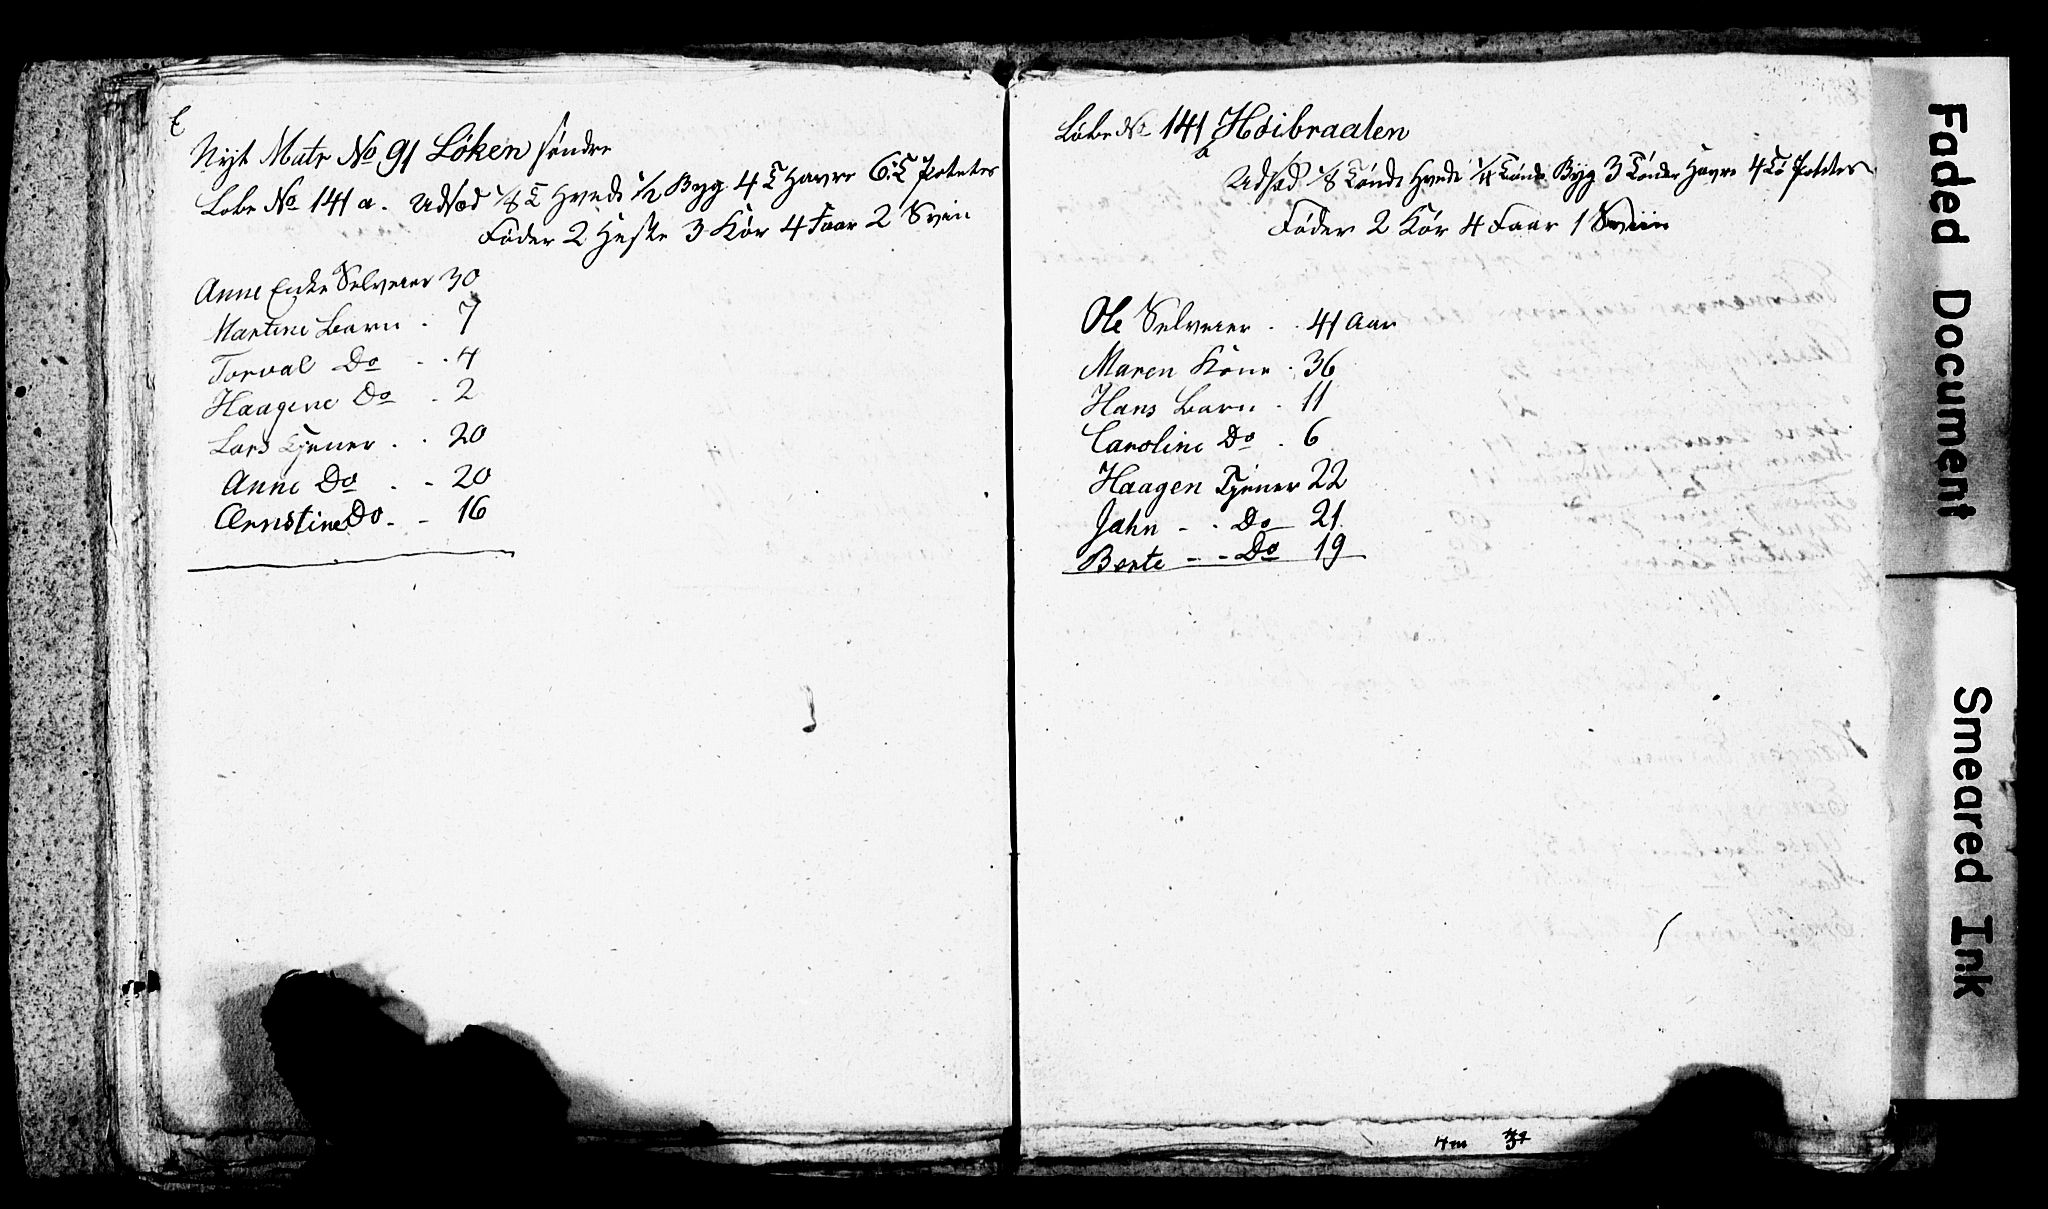 Nyt Matr No 91 Løken søndre
Løbe No 141 a. Udsæd 1/8 T Hvede 1/2 Byg 4 T Havre 6 T Potetes
Føder 2 Heste 3 Kør 4 Faar 2 Svin
Anne Enke Selveier 30
Martine Barn . 7
Torval Do . . 4
Haagene Do . 2
Lars Tjener . . 20
Anne Do . - 20
Ernstine Do - - 16
Løbe No 141 b Høibraaten
Udsæd 1/8 Tønde Hvede 1/4 Tønde Byg 3 Tønder Havre 4 Tø Potetes
Føder 2 Kør 4 Faar 1 Sviin
Ole Selveier . . 41 Aar
Maren Kone . 36
Hans Barn . 11
Caroline Do . 6
Haagen Tjener 22
Jahn - . Do 21
Berte - - Do 19
Faded Document
Smeared Ink